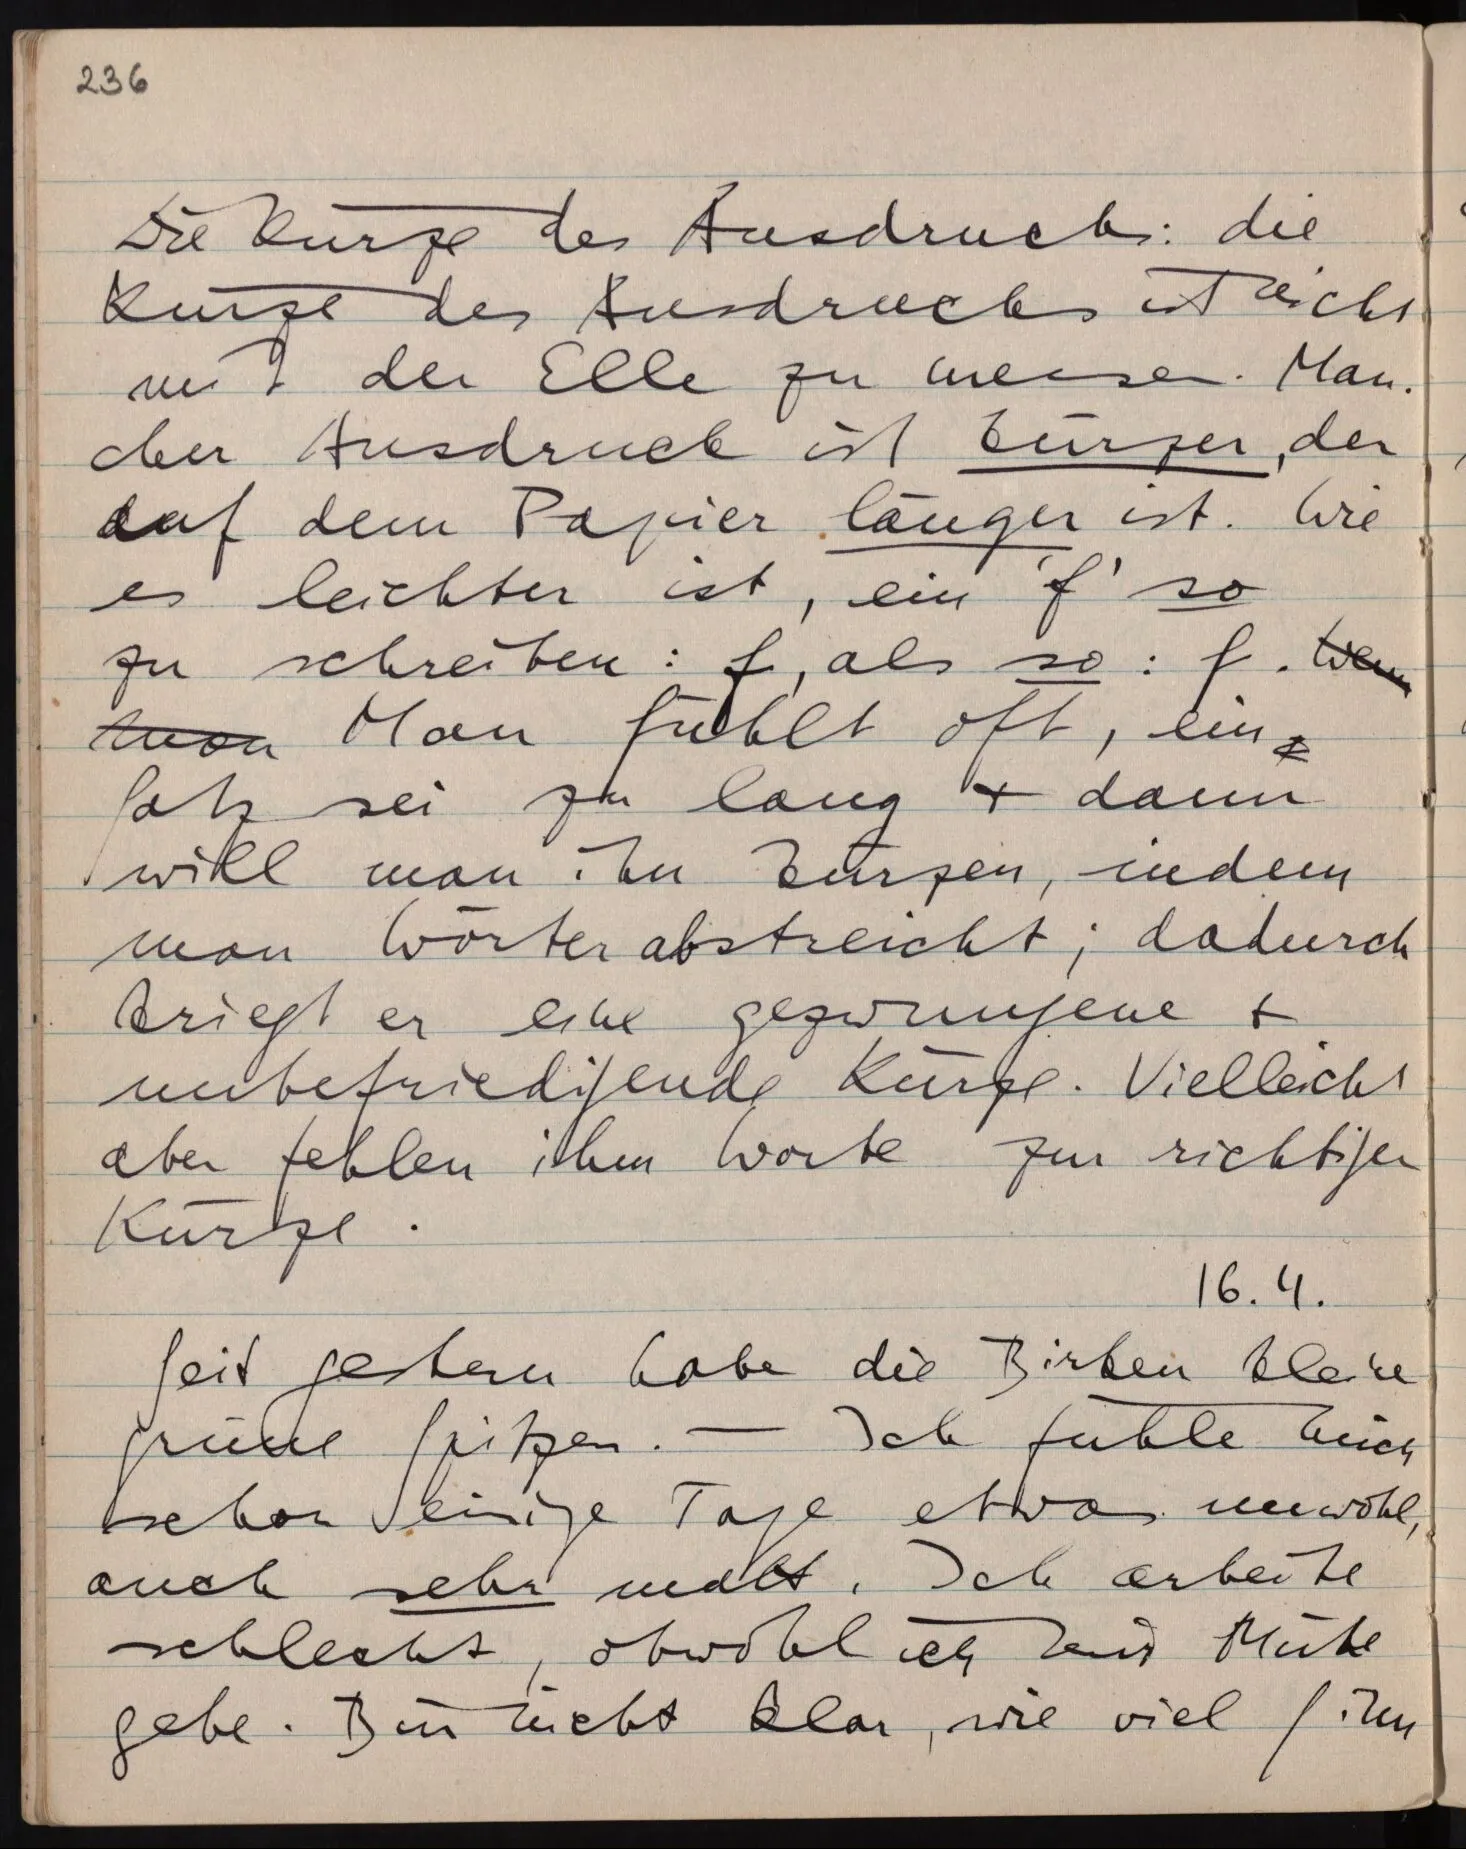 236
Die Kürze des Ausdrucks: die
Kürze des Ausdrucks ist nicht
mit der Elle zu messen. Man-
cher Ausdruck ist kürzer, der
auf dem Papier länger ist. Wie
es leichter ist, ein 'f' so
zu schreiben: f, als so: f. Wenn
man Man fühlt oft, ein
Satz sei zu lang + dann
will man ihn kürzen, indem
man Wörter abstreicht; dadurch
kriegt er eine gezwungene +
unbefriedigende Kürze. Vielleicht
aber fehlen ihm Worte zur richtigen
Kürze.
16.4.
Seit gestern habe die Birken kleine
grüne Spitzen. — Ich fühle mich
schon einige Tage etwas unwohl,
auch sehr matt. Ich arbeite
schlecht, obwohl ich mir Mühe
gebe. Bin nicht klar, wie viel Sinn